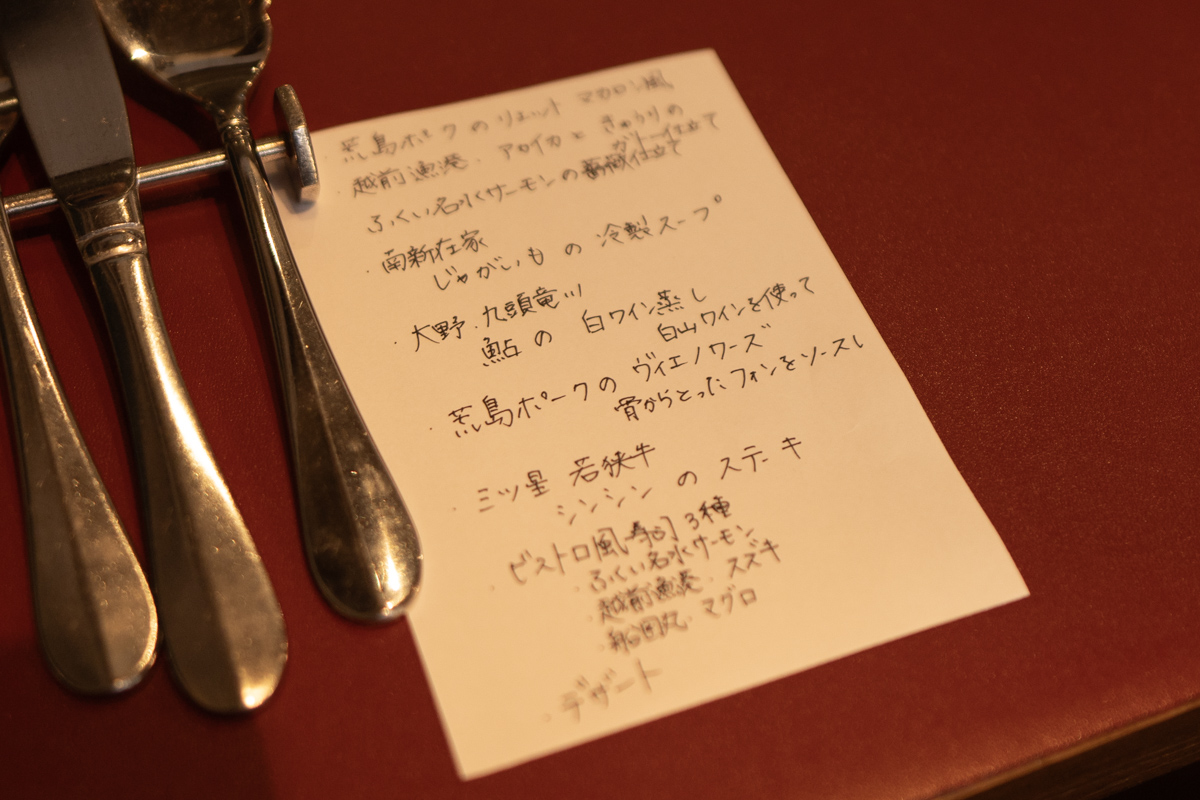 ・荒島ポークのリエット マカロン風
・越前漁港・アオイカときゅうりの
ガトー仕立て
ふくい名水サーモンの薔薇仕立て
・南新在家
じゃがいもの 冷製スープ
・大野・九頭竜川
鮎の 白ワイン蒸し
白山ワインを使って
・荒島ポークの ヴィエノワーズ
骨からとったフォンをソースし
・三ツ星 若狭牛
シンシン の ステーキ
・ビストロ風寿司 3種
・ふくい名水サーモン
・越前漁港・スズキ
・船団丸・マグロ
・デザート